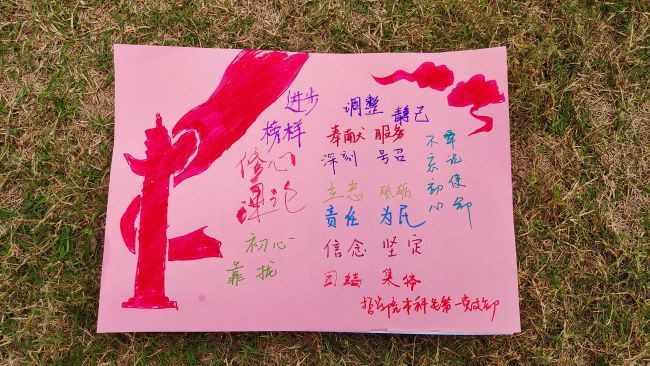 进步
榜样
修心
理论
初心
靠拢
调整 静己
奉献 服务
深刻 号召
立志 砥砺
责任 为民
信念 坚定
团结 集体
牢记使命
不忘初心
哲学院本科生第一党支部